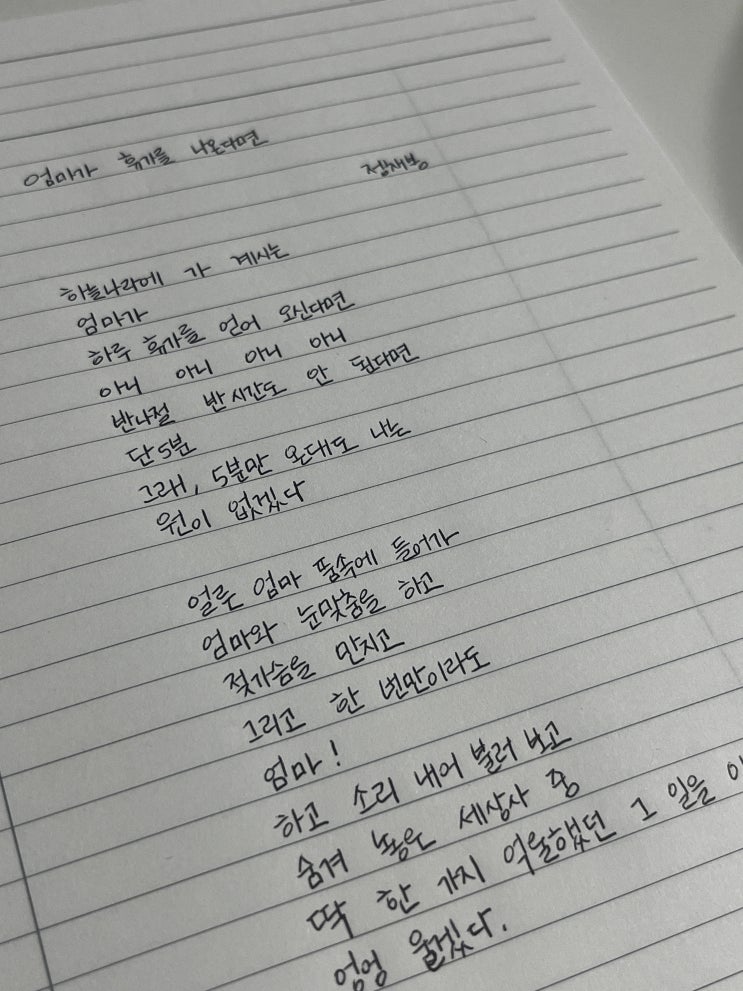 엄마가 휴가를 나온다면
정채봉
하늘나라에 가 계시는
엄마가
하루 휴가를 얻어 오신다면
아니 아니 아니 아니
반나절 반시간도 안 된다면
단 5분
그래, 5분만 온대도 나는
원이 없겠다
얼른 엄마 품속에 들어가
엄마와 눈맞춤을 하고
젖가슴을 만지고
그리고 한 번만이라도
엄마!
하고 소리 내어 불러 보고
숨겨 놓은 세상사 중
딱 한 가지 억울했던 그 일을
엉엉 울겠다.